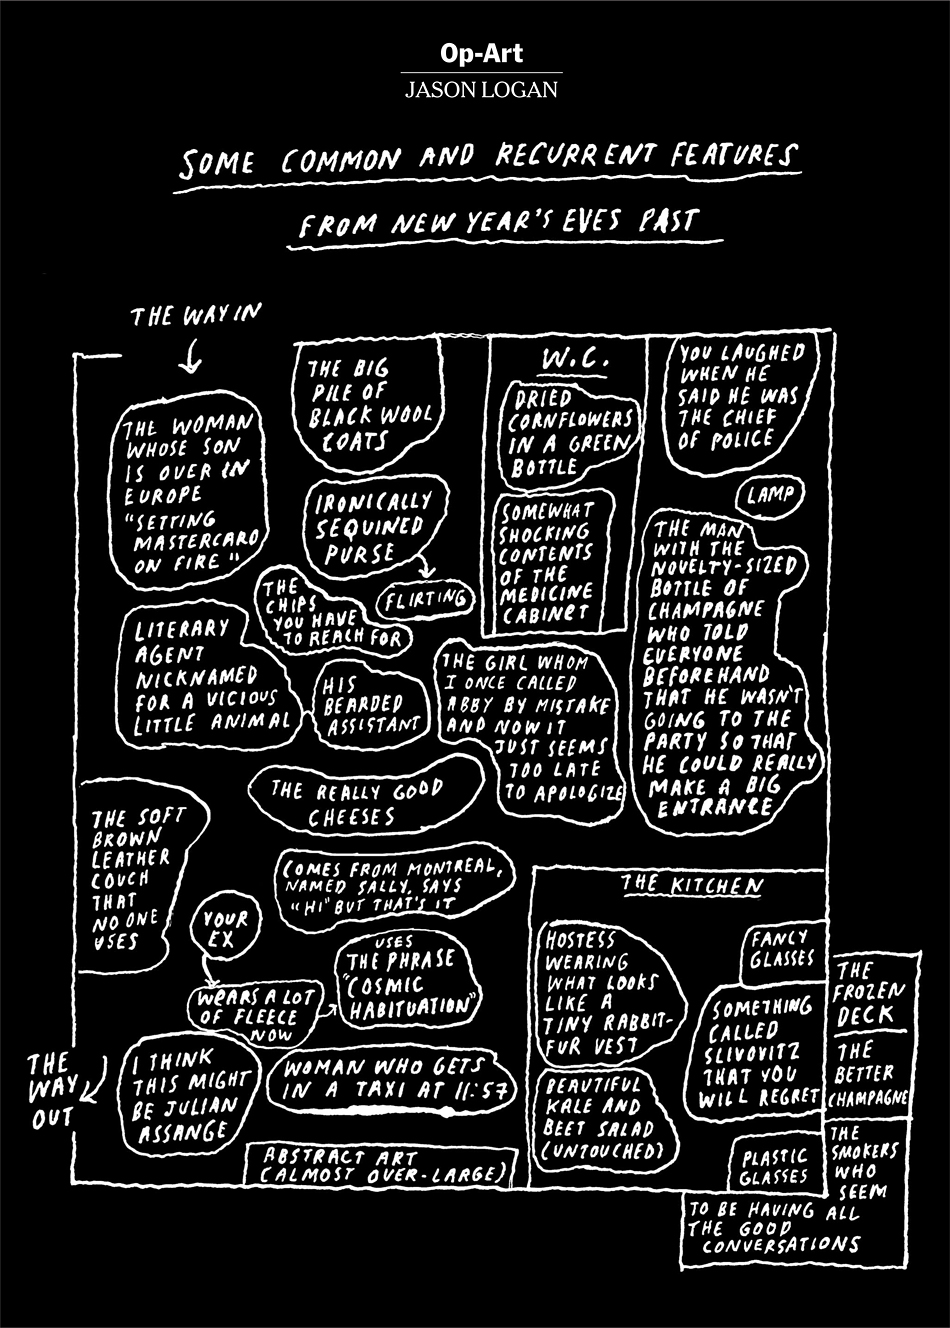 Op-Art
JASON LOGAN
SOME COMMON AND RECURRENT FEATURES
FROM NEW YEAR'S EVES PAST
THE WAY IN
THE WOMAN
WHOSE SON
IS OVER IN
EUROPE
"SETTING
MASTERCARD
ON FIRE"
THE BIG
PILE OF
BLACK WOOL
COATS
W.C.
DRIED
CORNFLOWERS
IN A GREEN
BOTTLE
SOMEWHAT
SHOCKING
CONTENTS
OF THE
MEDICINE
CABINET
YOU LAUGHED
WHEN HE
SAID HE WAS
THE CHIEF
OF POLICE
LAMP
IRONICALLY
SEQUINED
PURSE
FLIRTING
THE
CHIPS
YOU HAVE
TO REACH FOR
THE MAN
WITH THE
NOVELTY-SIZED
BOTTLE OF
CHAMPAGNE
WHO TOLD
EVERYONE
BEFOREHAND
THAT HE WASN'T
GOING TO THE
PARTY SO THAT
HE COULD REALLY
MAKE A BIG
ENTRANCE
LITERARY
AGENT
NICKNAMED
FOR A VICIOUS
LITTLE ANIMAL
HIS
BEARDED
ASSISTANT
THE GIRL WHOM
I ONCE CALLED
ABBY BY MISTAKE
AND NOW IT
JUST SEEMS
TOO LATE
TO APOLOGIZE
THE REALLY GOOD
CHEESES
THE SOFT
BROWN
LEATHER
COUCH
THAT
NO ONE
USES
COMES FROM MONTREAL,
NAMED SALLY, SAYS
"HI" BUT THAT'S IT
YOUR
EX
WEARS A LOT
OF FLEECE
NOW
USES
THE PHRASE
"COSMIC
HABITUATION"
THE KITCHEN
HOSTESS
WEARING
WHAT LOOKS
LIKE A
TINY RABBIT-
FUR VEST
FANCY
GLASSES
SOMETHING
CALLED
SLIVOVITZ
THAT YOU
WILL REGRET
BEAUTIFUL
KALE AND
BEET SALAD
(UNTOUCHED)
PLASTIC
GLASSES
THE
FROZEN
DECK
THE
BETTER
CHAMPAGNE
THE
SMOKERS
WHO
SEEM
TO BE HAVING ALL
THE GOOD
CONVERSATIONS
THE
WAY
OUT
I THINK
THIS MIGHT
BE JULIAN
ASSANGE
WOMAN WHO GETS
IN A TAXI AT 11:57
ABSTRACT ART
(ALMOST OVER-LARGE)